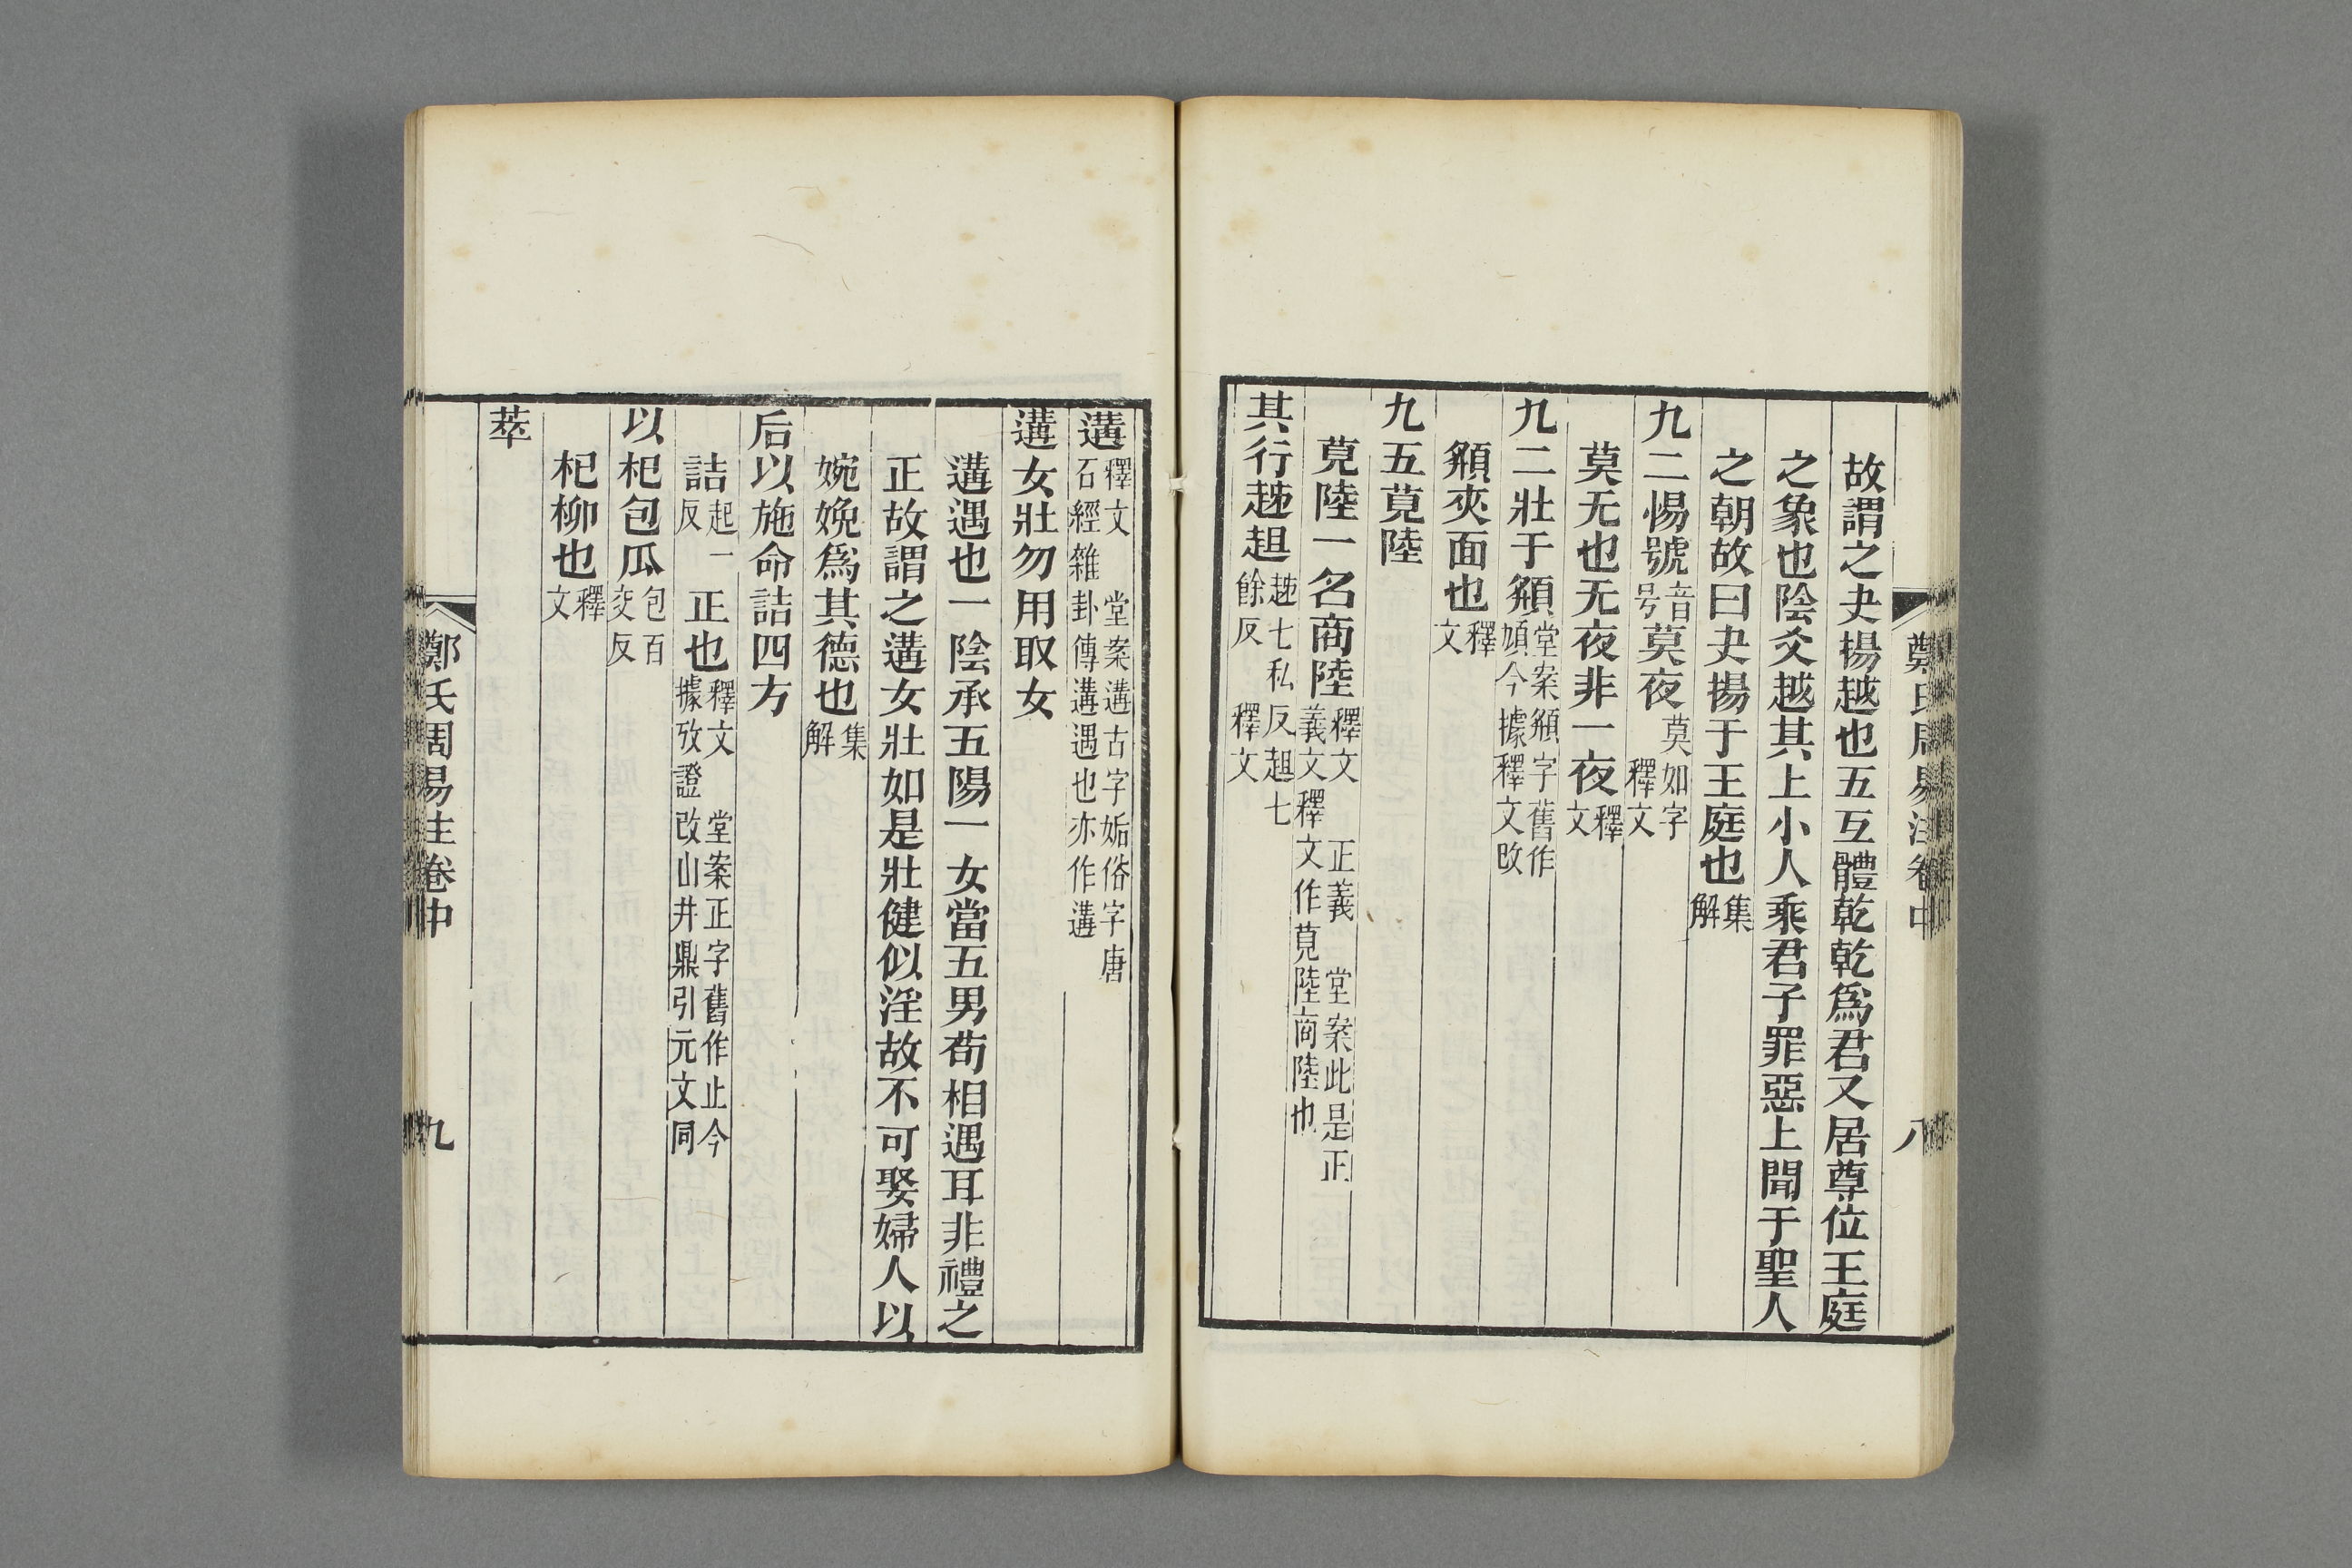 故謂之夬揚越也五互體乾乾爲君又居尊位王庭
之象也陰爻越其上小人乘君子罪惡上聞于聖人
之朝故曰夬揚于王庭也集解
九二惕號音号莫夜莫如字釋文
莫无也无夜非一夜釋文
九二壯于頯堂案頯字舊作頄今據釋文改
頯夾面也釋文
九五莧陸
莧陸一名商陸釋文正義堂案此是正義文釋文作莧陸商陸也
其行趑趄趑七私反趄七餘反釋文
鄭氏周易注卷中
八
遘釋文堂案遘古字姤俗字唐石經雜卦傳遘遇也亦作遘
遘女壯勿用取女
遘遇也一陰承五陽一女當五男苟相遇耳非禮之
正故謂之遘女壯如是壯健似淫故不可娶婦人以
婉娩爲其德也集解
后以施命詰四方
詰起一反正也釋文堂案正字舊作止今據攷證改山井鼎引元文同
以杞包瓜包百交反
杞柳也釋文
萃
鄭氏周易注卷中
九